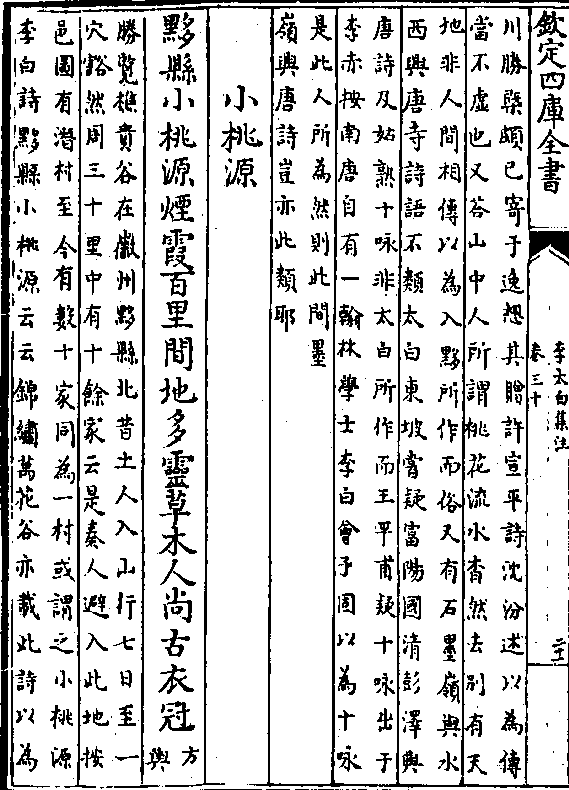 欽定四庫全書
李太白集注
卷三十
二十二
川勝槩頗已寄于逸想其贈許宣平詩沈汾述以為傳
當不虛也又荅山中人所謂桃花流水杳然去別有天
地非人間相傳以為入黟所作而俗又有石墨嶺與水
西興唐寺詩語不類太白東坡嘗疑富陽國清彭澤興
唐詩及姑熟十咏非太白所作而王平甫疑十咏出于
李赤按南唐自有一翰林學士李白曾子固以為十咏
是此人所為然則此間墨
嶺興唐詩豈亦此類耶
小桃源
黟縣小桃源煙霞百里間地多靈草木人尚古衣冠方輿
勝覽樵貴谷在徽州黟縣北昔土人入山行七日至一
穴豁然周三十里中有十餘家云是秦人避入此地按
邑圖有潛村至今有數十家同為一村或謂之小桃源
李白詩黟縣小桃源云云錦繡萬花谷亦載此詩以為